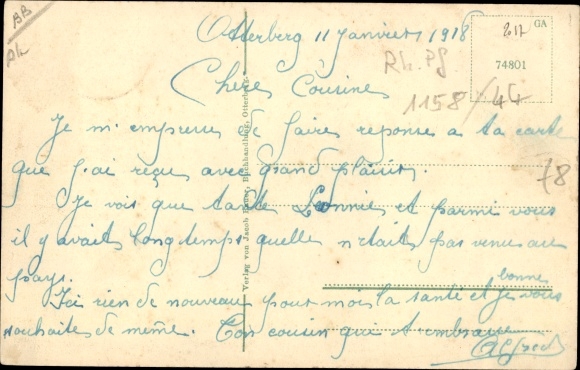 BB
PL
Otterberg 11 janvier 1918
217 GA
74801
Rh. Pf.
1158/44
78
Chere Cousine
Je m'empresse de faire reponse a ta carte
que j'ai reçue avec grand plaisir.
Je vois que tante Leonnie et parmi vous
il y avait longtemps quelle n'etait pas venue au
pays.
J'ai rien de nouveau pour moi, la santé et bonne je vous
souhaite de même. Ton cousin qui t embrasse
Alfred
Verlag von Jacob Heuser, Buchhandlung, Otterberg.